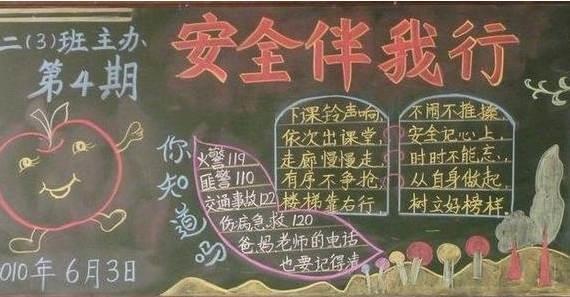 二(3)班主办
第4期
安全伴我行
你知道吗
火警119
匪警110
交通事故122
伤病急救120
爸妈老师的电话
也要记得清
下课铃声响,
依次出课堂,
走廊慢慢走,
有序不争抢,
楼梯靠右行,
不闹不推搡,
安全记心上,
时时不能忘,
从自身做起,
树立好榜样.
010年6月3日